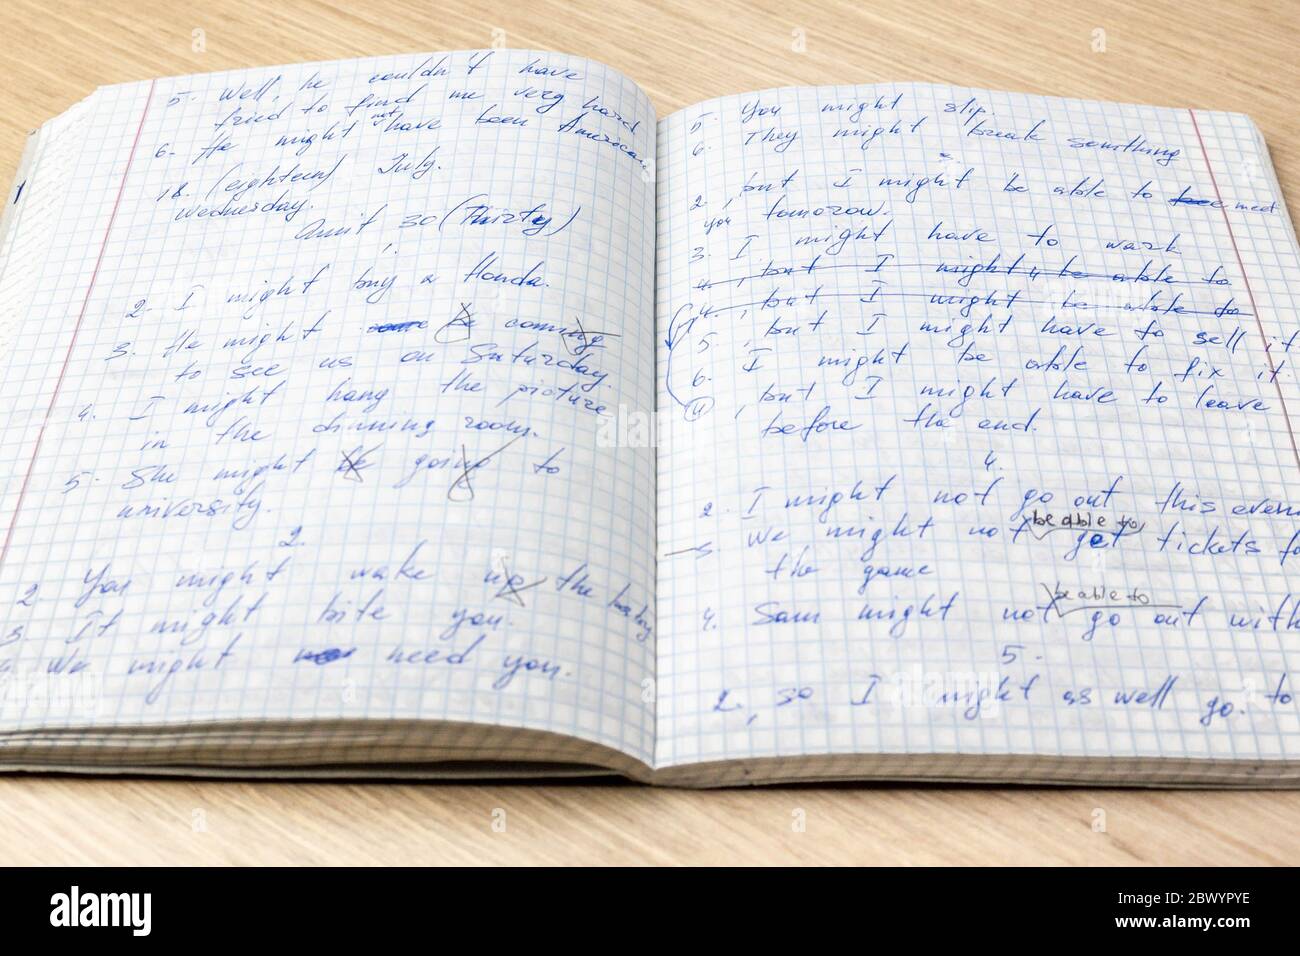 5. Well, he couldn't have
tried to find me very hard
6. He might not have been American
18. (eighteen) July.
wednesday.
Unit 30 (Thirty)
1.
2. I might buy a Honda.
3. He might be coming
to see us on Saturday.
4. I might hang the picture
in the dinning room.
5. She might be going to
university.
2.
2. You might wake up the
3. It might bite you.
4. We might need you.
5. You might slip.
6. They might break something
3.
2. , but I might be able to meet
you tomorrow.
3. I might have to wark
4. , but I might be able to
4. , but I might be able to
5. , but I might have to sell it
6. I might be able to fix it.
4 , but I might have to leave
before the end.
4.
2. I might not go out this even
3. We might not be able to get tickets fo
the game
4. Sam might not be able to go out with
5.
2. , so I might as well go. to
alamy
Image ID: 2BWYPYE
www.alamy.com